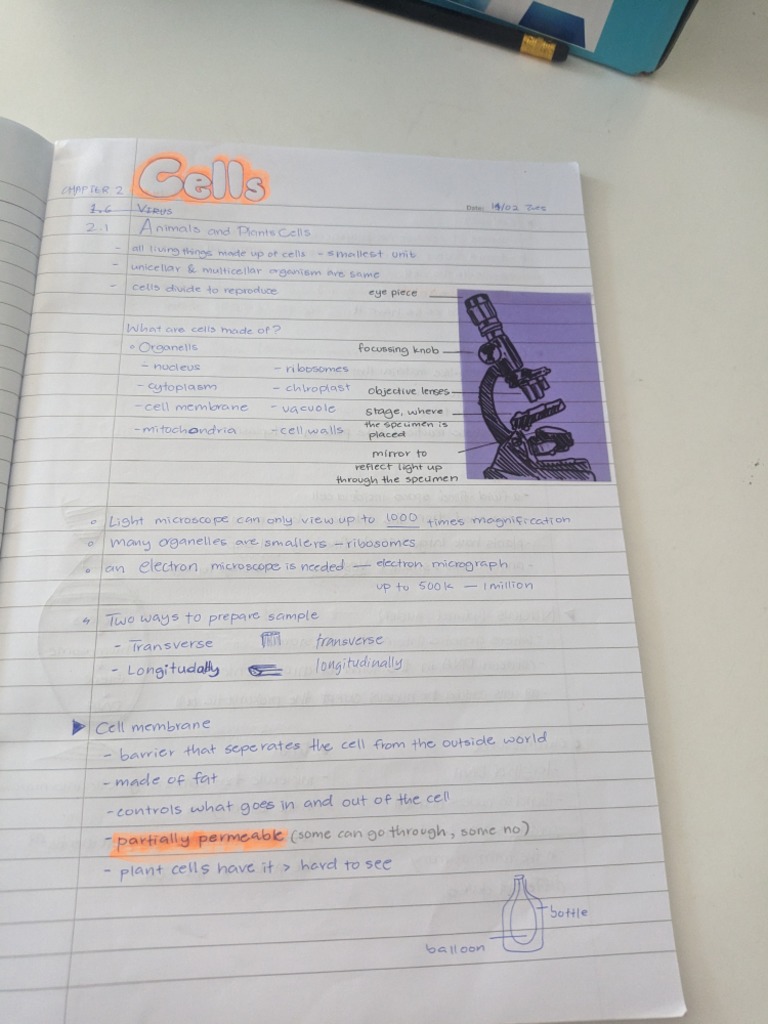 Cells
CHAPTER 2
1.6 VIRUS
Date: 14/02 Tues
2.1 Animals and Plants Cells
- all living things made up of cells - smallest unit
- unicellar & multicellar organism are same
- cells divide to reproduce
eye piece
What are cells made of?
focussing knob
Organells
- nucleus - ribosomes
- cytoplasm - chlroplast
objective lenses
- cell membrane - vacuole
stage, where
the specumen is
placed
- mitochandria - cell walls
mirror to
reflect light up
through the specumen
Light microscope can only view up to 1000 times magnification
many organelles are smallers - ribosomes
an electron microscope is needed — electron micrograph
up to 500k — 1 million
Two ways to prepare sample
- Transverse transverse
- Longitudally longitudinally
Cell membrane
- barrier that seperates the cell from the outside world
- made of fat
- controls what goes in and out of the cell
- partially permeable (some can go through, some no)
- plant cells have it > hard to see
bottle
balloon